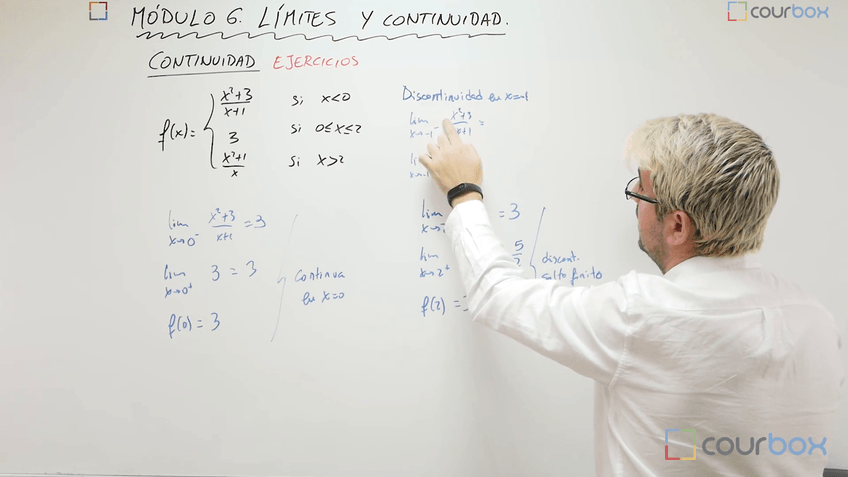 MÓDULO 6. LÍMITES Y CONTINUIDAD.
courbox
CONTINUIDAD EJERCICIOS
f(x) = { (x²+3)/(x+1) si x<0
3 si 0≤x≤2
(x²+1)/x si x>2
lim x→0⁻ (x²+3)/(x+1) = 3
lim x→0⁺ 3 = 3
f(0) = 3
Continua
en x=0
Discontinuidad en x=-1
lim x→-1⁻ (x²+3)/(x+1) =
lim
= 3
lim x→2⁺
f(2) =
discont.
salto finito
courbox